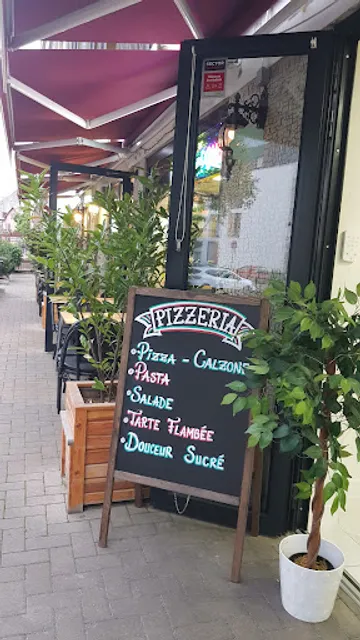 PIZZERIA
• Pizza - Calzone
• Pasta
• Salade
• Tarte Flambée
• Douceur Sucré